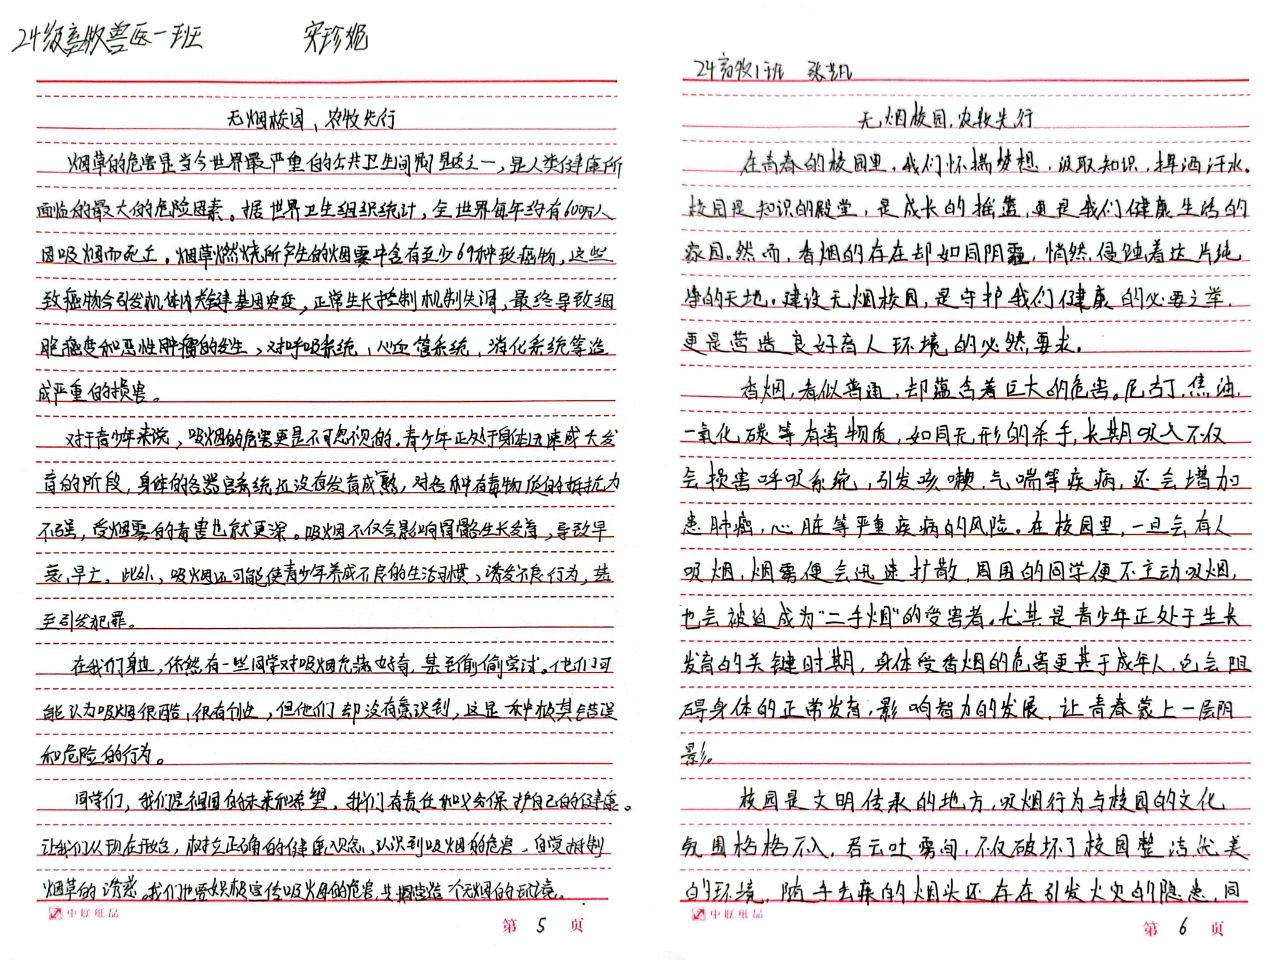 24级畜牧兽医一班 宋珍妮
无烟校园、农牧先行
烟草的危害是当今世界最严重的公共卫生问题之一，是人类健康所
面临的最大的危险因素。据世界卫生组织统计，全世界每年约有600万人
因吸烟而死亡。烟草燃烧所产生的烟雾中含有至少69种致癌物，这些
致癌物会引发机体内关键基因突变，正常生长控制机制失调，最终导致细
胞癌变和恶性肿瘤的发生，对呼吸系统，心血管系统，消化系统等造
成严重的损害。
对于青少年来说，吸烟的危害更是不可忽视的。青少年正处于身体迅速成长发
育的阶段，身体的各器官系统还没有发育成熟，对各种有毒物质的抵抗力
不强，受烟雾的毒害也就更深。吸烟不仅会影响骨骼生长发育，导致早
衰，早亡。此外，吸烟还可能使青少年养成不良的生活习惯，诱发不良行为，甚
至引发犯罪。
在我们身边，依然有一些同学对吸烟充满好奇，甚至偷偷尝试。他们可
能认为吸烟很酷，很有个性，但他们却没有意识到，这是一种极其错误
和危险的行为。
同学们，我们是祖国的未来和希望，我们有责任和义务保护自己的健康。
让我们从现在开始，树立正确的健康观念，认识到吸烟的危害，自觉抵制
烟草的诱惑。我们也要积极宣传吸烟的危害，共同营造一个无烟的环境。
中联纸品
第 5 页
24畜牧1班 张艺凡
无烟校园，农牧先行
在青春的校园里，我们怀揣梦想，汲取知识，挥洒汗水。
校园是知识的殿堂，是成长的摇篮，更是我们健康生活的
家园。然而，香烟的存在却如同阴霾，悄然侵蚀着这片纯
净的天地。建设无烟校园，是守护我们健康的必要之举，
更是营造良好育人环境的必然要求。
香烟，看似普通，却蕴含着巨大的危害。尼古丁，焦油，
一氧化碳等有害物质，如同无形的杀手，长期吸入不仅
会损害呼吸系统，引发咳嗽，气喘等疾病，还会增加
患肿瘤，心脏等严重疾病的风险。在校园里，一旦会有人
吸烟，烟雾便会迅速扩散，周围的同学便不主动吸烟，
也会被迫成为“二手烟”的受害者。尤其是青少年正处于生长
发育的关键时期，身体受香烟的危害更甚于成年人，它会阻
碍身体的正常发育，影响智力的发展，让青春蒙上一层阴
影。
校园是文明传承的地方，吸烟行为与校园的文化
氛围格格不入，吞云吐雾间，不仅破坏了校园整洁优美
的环境，随手丢弃的烟头还存在引发火灾的隐患，同
中联纸品
第 6 页